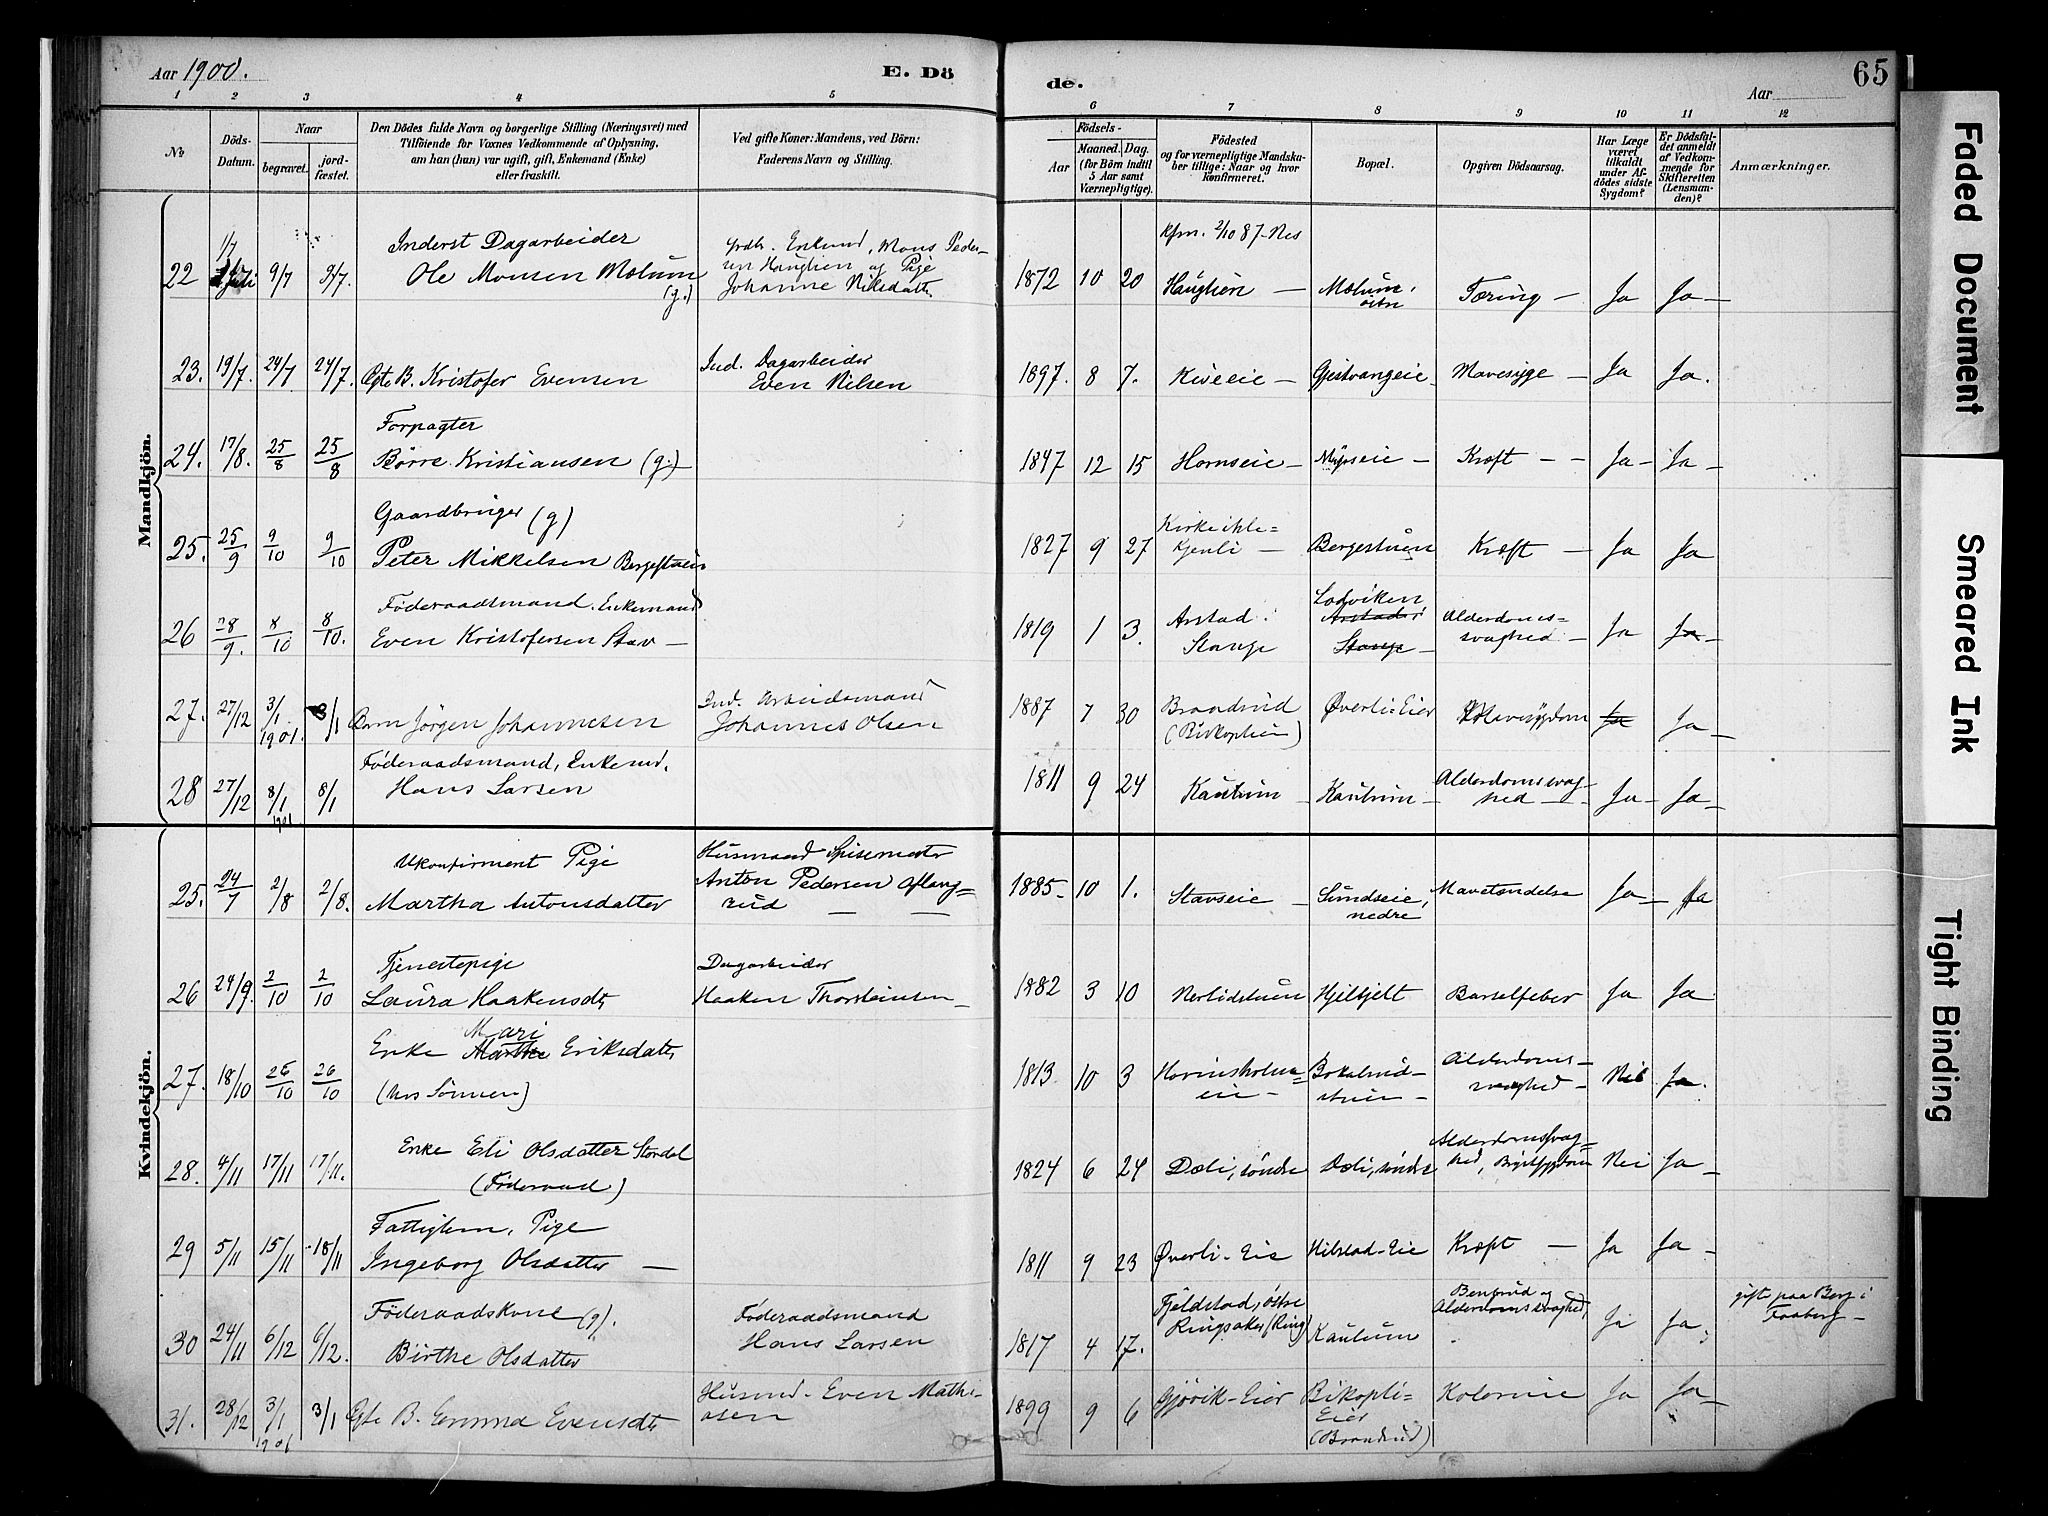 Aar 1900.
E. Dö
de.
Aar
65
1 2 3 4 5 6 7 8 9 10 11 12
No
Döds-Datum.
Naar
begravet.
jord-fæstet.
Den Dödes fulde Navn og borgerlige Stilling (Næringsvei) med
Tilföiende for Voxnes Vedkommende af Oplysning,
om han (hun) var ugift, gift, Enkemand (Enke)
eller fraskilt.
Ved gifte Koner: Mandens, ved Börn:
Faderens Navn og Stilling.
Födsels-
Aar
Maaned. Dag.
(for Börn indtil
5 Aar samt
Værnepligtige).
Födested
og for værnepligtige Mandska-
ber tillige: Naar og hvor
konfirmeret.
Bopæl.
Opgiven Dödsaarsag.
Har Læge
været
tilkaldt
under Af-
dödes sidste
Sygdom?
Er Dödsfal-
det anmeldt
af Vedkom-
mende for
Skifteretten
(Lensman-
den)?
Anmærkninger.
Mandkjön.
22 1/7 9/7 9/7. Inderst Dagarbeider
Ole Monsen Mælum (g.)
Enkemd, Mons Peder-
sen Hauglien og Pige
Johanne Nilsdatter
1872 10 20 Kfm. 2/10 87 Nes
Hauglien — Mælum, östre Tæring — Ja Ja —
23. 19/7. 24/7 24/7. Ægte B. Kristofer Evensen
Ind. Dagarbeider
Even Nilsen
1897. 8 7. Kiseeie — Gjestvangeie Mavesyge — Ja Ja.
24. 17/8. 25/8 25/8 Forpagter
Börre Kristiansen (g.) —
1847 12 15 Hornseie — Myrseie — Kræft — — Ja — Ja —
25. 25/9 9/10 9/10 Gaardbruger (g)
Peter Mikkelsen Bergestuen
1827 9 27 Kirke ikke=
kjendt — Bergestuen Kræft — Ja Ja
26 28/9. 8/10 8/10. Föderaadsmand. Enkemand
Even Kristofersen Stav —
1819 1 3. Arstad i
Stange
Lodviken
Arstad i
Stange —
Alderdoms=
svaghed — Ja Ja —
27. 27/12 3/1 1901. 3/1 Barn Jörgen Johannesen
Ind. Arbeidsmand
Johannes Olsen
1887 7 30 Brandrud
(Bikoplien) Överli=Eier Mavesygdom Ja Ja —
28 27/12 8/1 1901 8/1 Föderaadsmand, Enkemd.
Hans Larsen
1811 9 24 Kautrum — Kautrum — Alderdomssvag=
hed — Ja — Ja —
Kvindekjön.
25. 24/7 2/8 2/8. Ukonfirmert Pige
Martha Antonsdatter
Husmand Spisemester
Anton Pedersen Aflang=
rud — —
1885 — 10 1. Stavseie — Sundseie,
nedre Mavetændelse Ja — Ja
26 24/9. 2/10 2/10 Tjenestepige
Laura Haakensdtr
Dagarbeider
Haaken Thorsteinsen —
1882 3 10 Nerlidstuen Hjelkjelt Barselfeber Ja Ja
27. 18/10 26/10 26/10 Enke Mari Marthe Eriksdatter
(hos Sönnen)
1813 10 3 Hovinsholm=
eie — Bokalrud-
stuen — Alderdoms=
svaghed — Nei Ja.
28. 4/11 17/11 17/11. Enke Eli Olsdatter Stordel
(Föderaad)
1824 6 24 Dæli, söndre Dæli, söndre Alderdomssvag=
hed, Brystsygdom Nei Ja —
29 5/11 15/11 18/11 Fattiglem, Pige
Ingeborg Olsdatter —
1811 9 23 Överli-Eie Hilstad-Eie Kræft — Ja Ja —
30 24/11 6/12 6/12. Föderaadskone (g).
Birthe Olsdatter
Föderaadsmand
Hans Larsen
1817 4 17. Fjeldstad, östre
Ringsaker (Ring) Kautrum Benbrud og
Alderdomssvaghed, Ja Ja
gift paa Berg i
Faaberg —
31. 28/12 3/1 1901 3/1 Ægte B. Emma Evensdtr
Husmd. Even Mathi-
asen
1899 9 6 Gjörvik-Eier Bikopli=
Eier
(Brandrud) Kolerine Ja Ja —
Faded Document
Smeared Ink
Tight Binding